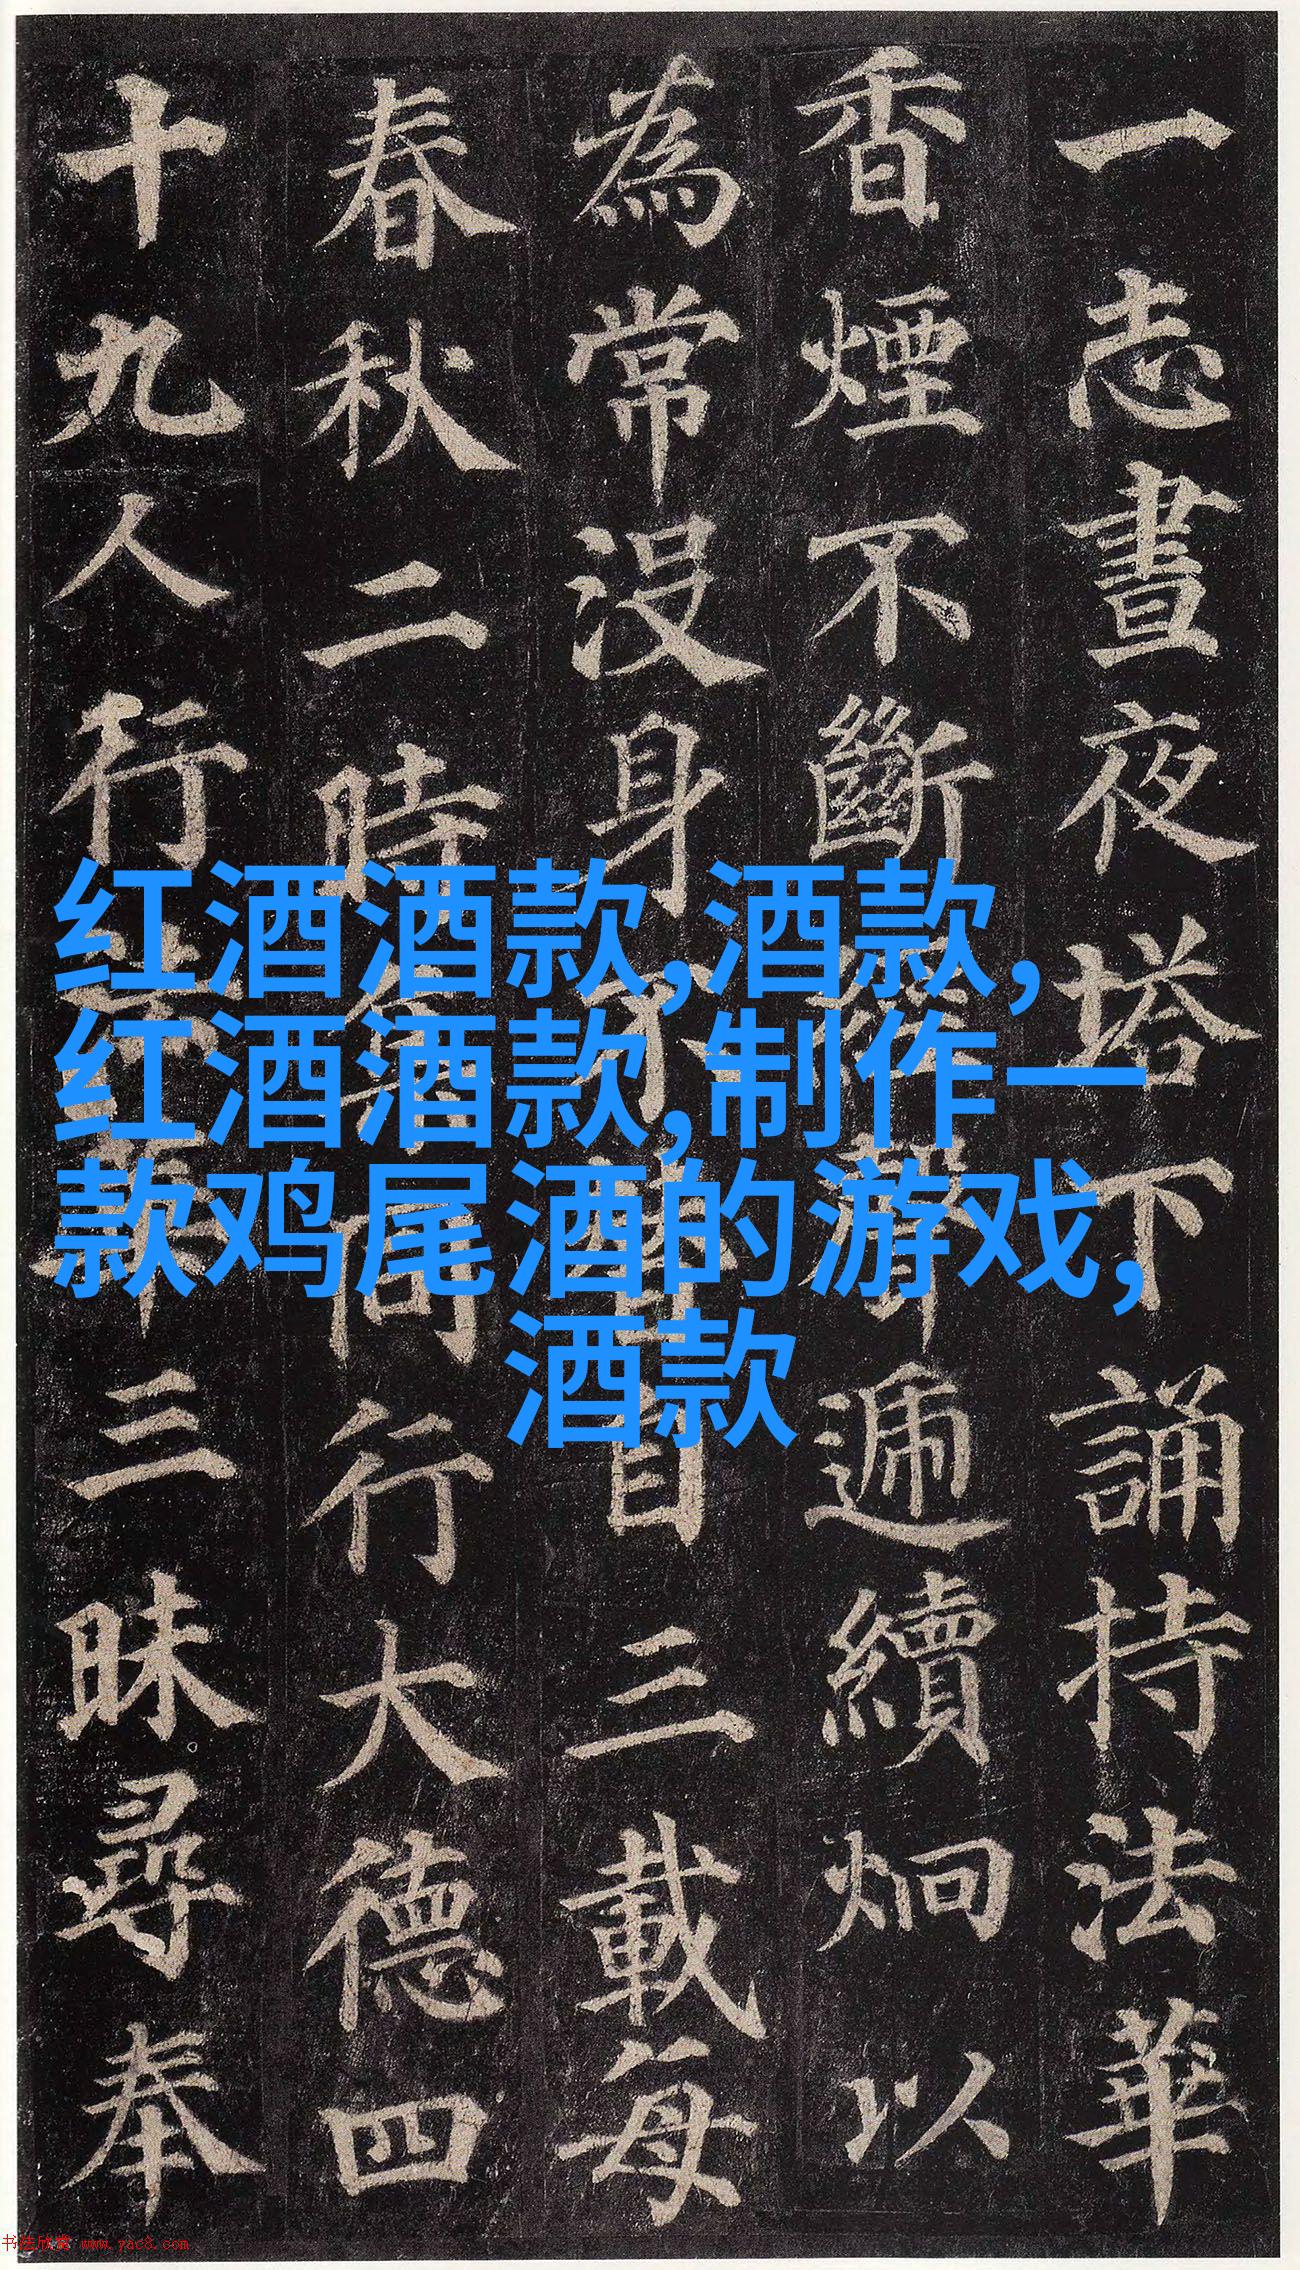 一志晝夜塔下誦持法華
香煙不斷經聲遞續炯以
為常没身不替自三載每
春秋二時集同行大德四
十九人行法華三昧尋奉
红酒酒款,酒款,
红酒酒款,制作一
款鸡尾酒的游戏,
酒款
书法欣赏 www.yac8.com